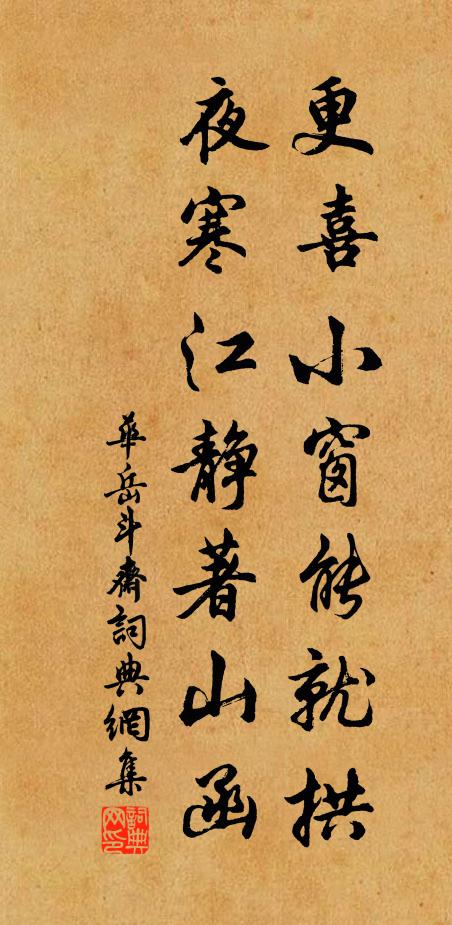 更喜小窗能就拱
夜寒江静著山函
華岳斗齋詞典網集
詞典網印